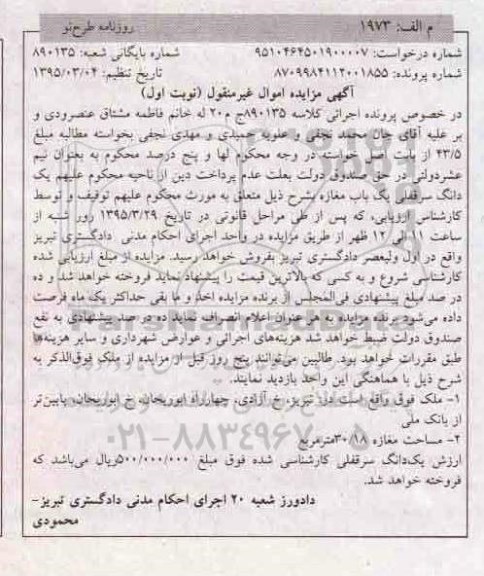 م الف: ۱۹۷۳
روزنامه طرح‌نو
شماره درخواست: ۹۵۱۰۴۶۴۵۰۱۹۰۰۰۰۷
شماره بایگانی شعبه: ۸۹۰۱۳۵
شماره پرونده: ۸۷۰۹۹۸۴۱۱۲۰۰۱۸۵۵
تاریخ تنظیم: ۱۳۹۵/۰۳/۰۴
آگهی مزایده اموال غیرمنقول (نوبت اول)
در خصوص پرونده اجرائی کلاسه ۸۹۰۱۳۵ج م۲۰ له خانم فاطمه مشتاق عنصرودی و
بر علیه آقای جان محمد نجفی و علویه حمیدی و مهدی نجفی بخواسته مطالبه مبلغ
۴۳/۵ از بابت اصل خواسته در وجه محکوم لها و پنج درصد محکوم به بعنوان نیم
عشردولتی در حق صندوق دولت بعلت عدم پرداخت دین از ناحیه محکوم علیهم یک
دانگ سرقفلی یک باب مغازه بشرح ذیل متعلق به مورث محکوم علیهم توقیف و توسط
کارشناس ارزیابی، که پس از طی مراحل قانونی در تاریخ ۱۳۹۵/۳/۲۹ روز شنبه از
ساعت ۱۱ الی ۱۲ ظهر از طریق مزایده در واحد اجرای احکام مدنی دادگستری تبریز
واقع در اول ولیعصر دادگستری تبریز بفروش خواهد رسید. مزایده از مبلغ ارزیابی شده
کارشناسی شروع و به کسی که بالاترین قیمت را پیشنهاد نماید فروخته خواهد شد و ده
در صد مبلغ پیشنهادی فی‌المجلس از برنده مزایده اخذ و ما بقی حداکثر یک ماه فرصت
داده می‌شود برنده مزایده به هر عنوان اعلام انصراف نماید ده در صد پیشنهادی به نفع
صندوق دولت ضبط خواهد شد هزینه‌های اجرائی و عوارض شهرداری و سایر هزینه‌ها
طبق مقررات خواهد بود. طالبین می‌توانند پنج روز قبل از مزایده از ملک فوق‌الذکر به
شرح ذیل با هماهنگی این واحد بازدید نمایند.
۱- ملک فوق واقع است در: تبریز، خ آزادی، چهارراه ابوریحان، خ ابوریحان، پایین‌تر
از بانک ملی
۲- مساحت مغازه ۳۰/۱۸مترمربع
ارزش یک‌دانگ سرقفلی کارشناسی شده فوق مبلغ ۵۰۰/۰۰۰/۰۰۰ریال می‌باشد که
فروخته خواهد شد.
دادورز شعبه ۲۰ اجرای احکام مدنی دادگستری تبریز-
محمودی
ParsNamadData
۰۲۱-۸۸۳۴۹۶۷۰-۵